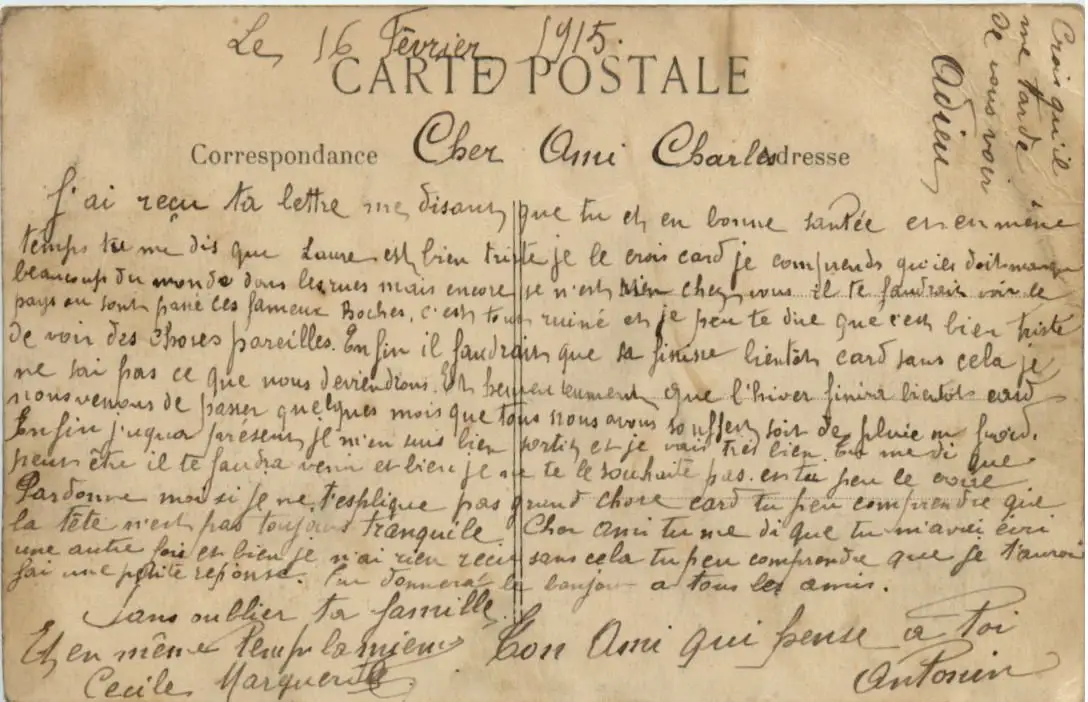 Le 16 Février 1915.
CARTE POSTALE
Correspondance
Cher Ami Charles
Adresse
J'ai reçu ta lettre me disant que tu et en bonne santée et en même
temps tu me dis que Laure est bien triste je le crois card je comprends qu'ils doit manque
beaucoup du monde dans les rues mais encore se n'est rien chez vous il te faudrait voir le
pays ou sont passé ces fameux Boches, c'est tout ruiné et je peu te dire que c'est bien triste
de voir des choses pareilles. Enfin il faudrait que sa finisse bientot card sans cela je
ne sai pas ce que nous deviendrions. Et heureusement que l'hiver finira bientot card
nous venons de passer quelques mois que tous nous avons souffert soit de pluie ou froid.
Enfin juqua présent je m'en suis bien sortit et je vais très bien. Tu me di que
peut être il te faudra venir et bien je ne te le souhaite pas. et tu peu le croire
Pardonne moi si je ne t'esplique pas grand chose card tu peu comprendre que
la tête n'est pas toujours tranquile. Cher Ami tu me di que tu m'avai écri
une autre fois et bien je n'ai rien reçu sans cela tu peu comprendre que je t'aurai
fai une petite réponse. Tu donnerat le bonjour a tous les amis.
Sans oublier ta famille
Et en même temp la mienne
Cecile Marguerite
Ton Ami qui pense a toi
Antonin
Crois qu'il
me tarde
de vous voir
Adieu